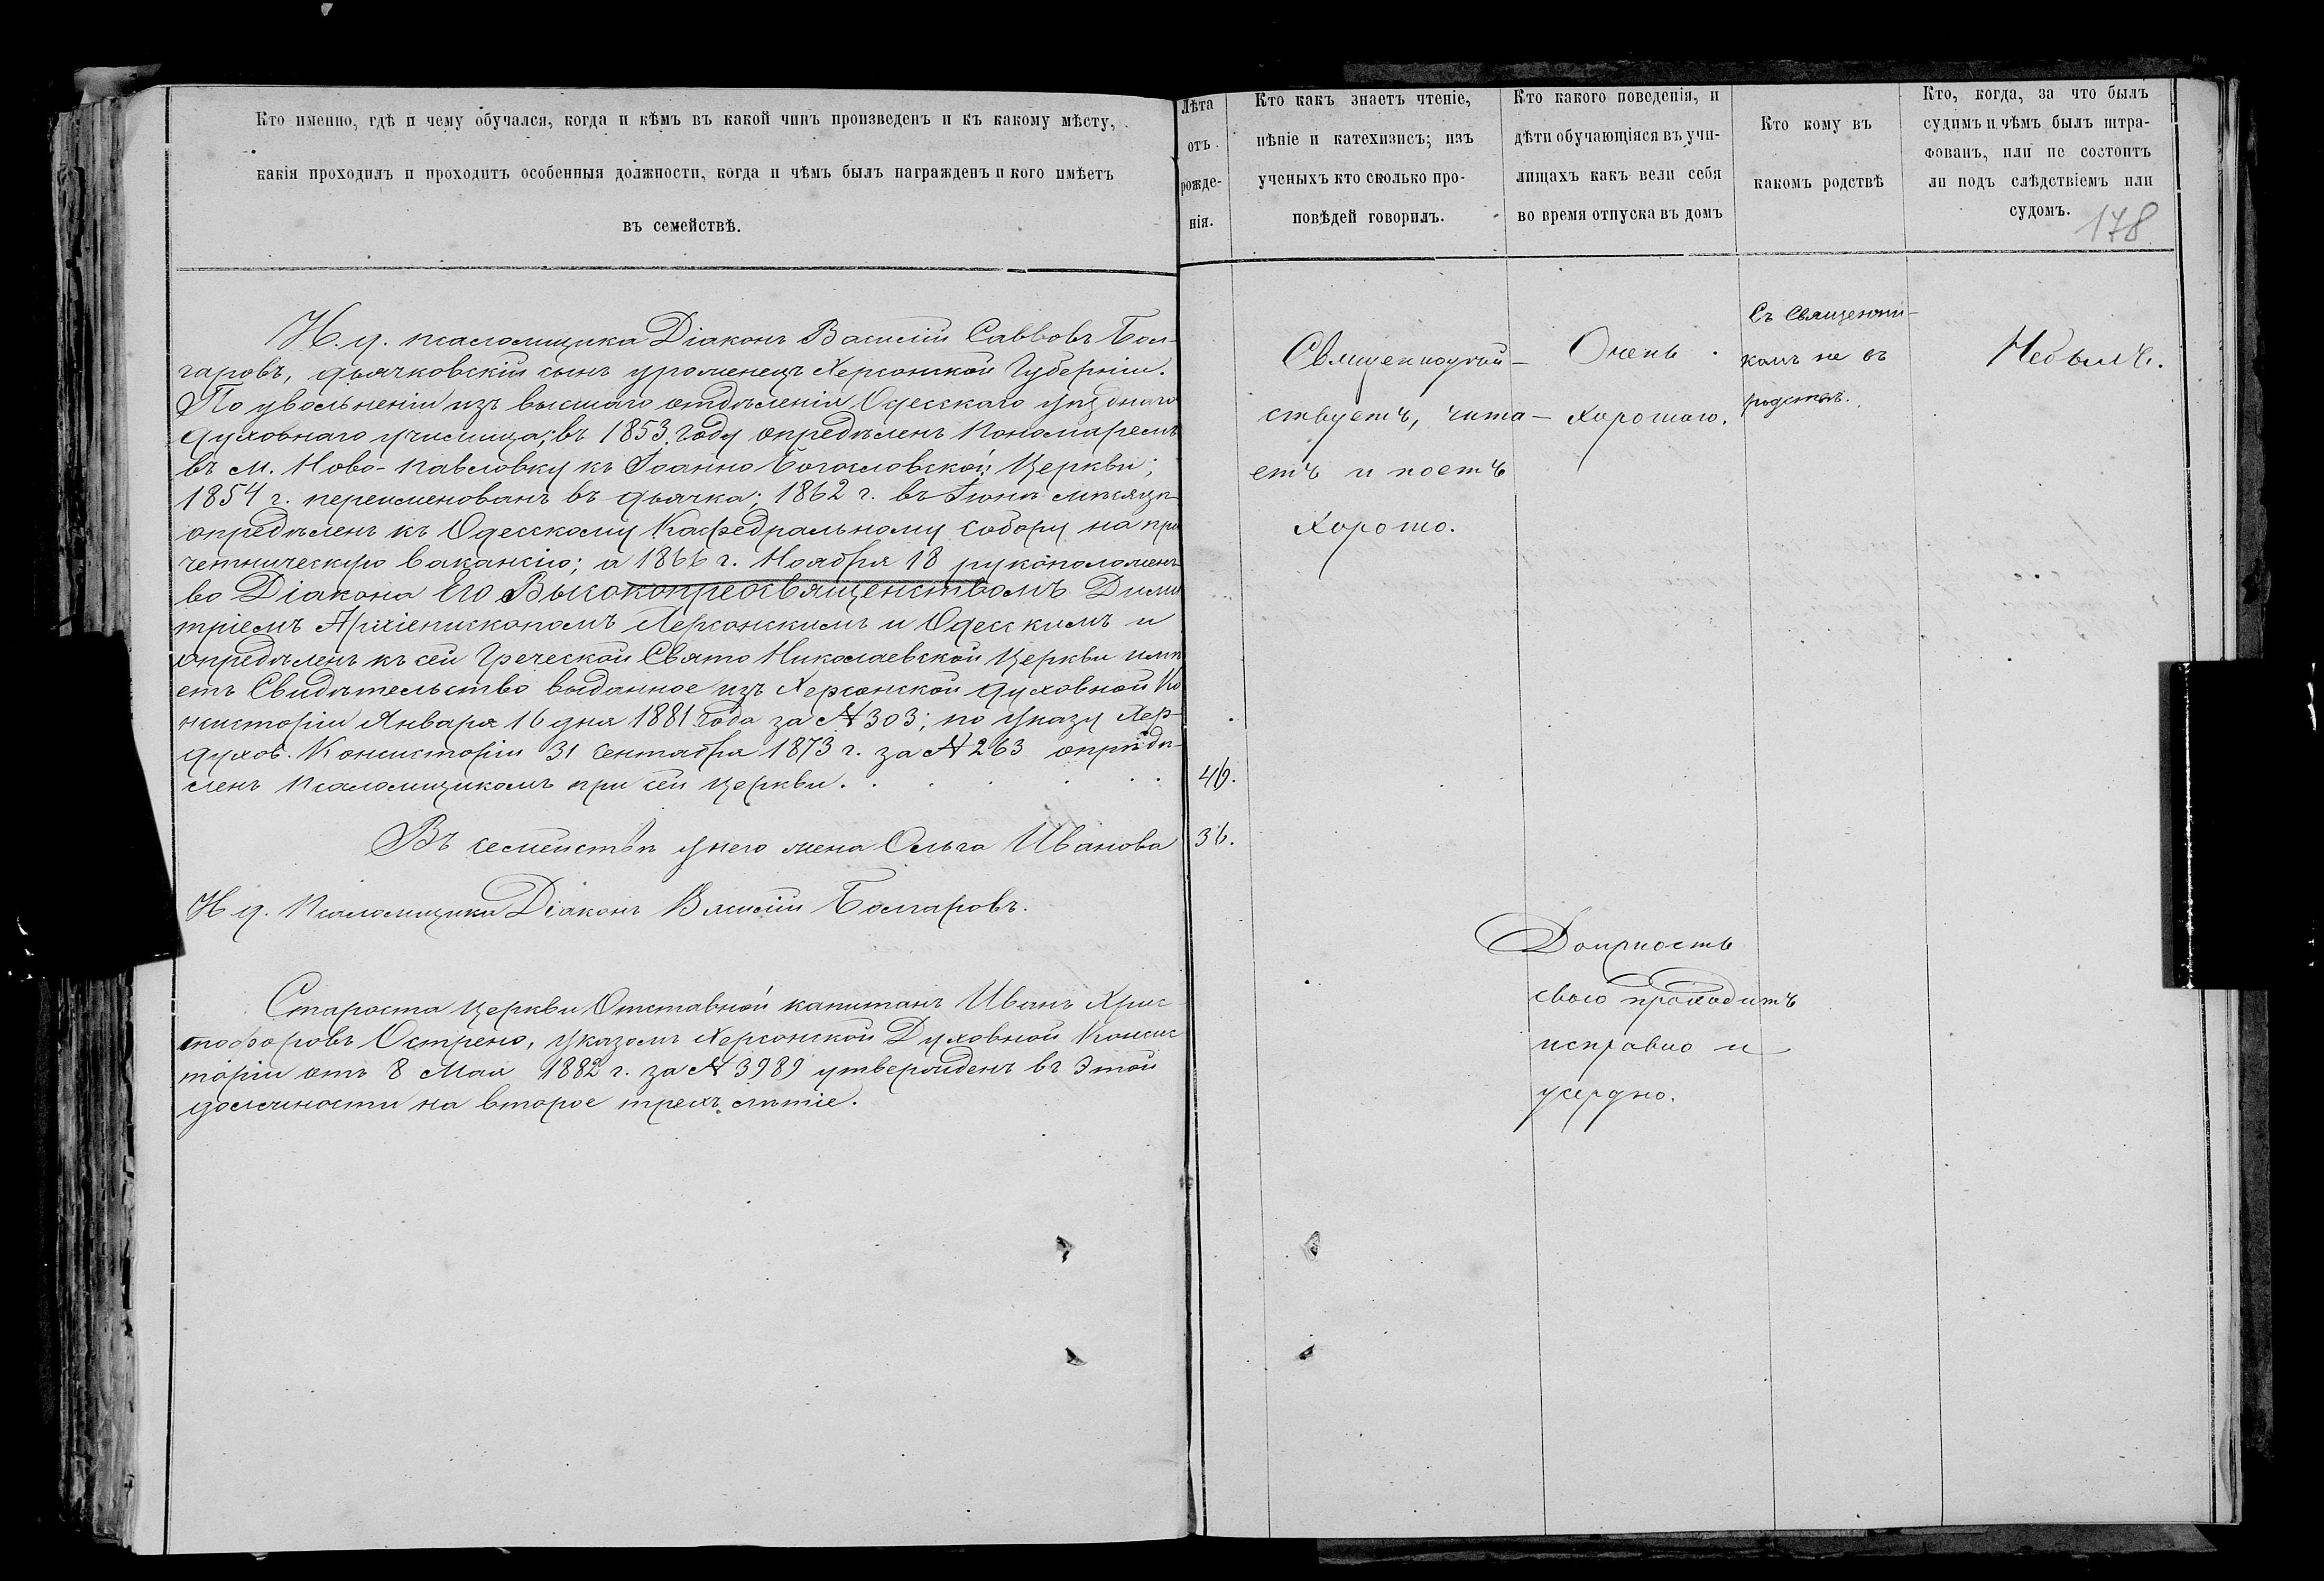 Кто именно, гдѣ и чему обучался, когда и кѣмъ въ какой чинъ произведенъ и къ какому мѣсту,
какія проходилъ и проходитъ особенныя должности, когда и чѣмъ былъ награжденъ и кого имѣетъ
въ семействѣ.
И. д. псаломщика Діаконъ Василій Саввовъ Бол-
гаровъ, дьячковскій сынъ уроженецъ Херсонской Губерніи.
По увольненіи изъ высшаго отдѣленія Одесскаго уѣзднаго
духовнаго училища; въ 1853. году опредѣленъ пономаремъ
въ м. Ново-Павловку къ Іоанно Богословской Церкви;
1854 г. переименованъ въ дьячка; 1862 г. въ Іюнѣ мѣсяцѣ
опредѣленъ къ Одесскому Кафедральному Собору на при
четническую вакансію; а 1866 г. Ноября 18 рукоположенъ
во Діакона Его Высокопреосвященствомъ Дими
тріемъ Архіепископомъ Херсонскимъ и Одесскимъ и
опредѣленъ къ сей Греческой Свято Николаевской Церкви имѣ
етъ Свидѣтельство выданное изъ Херсонской духовной Ко
нсисторіи Января 16 дня 1881 года за № 303; по указу Хер-
духов. Консисторіи 31 Сентября 1873 г. за № 263 опредѣ-
ленъ псаломщикомъ при сей церкви.
Въ семействѣ у него жена Ольга Иванова
И д. Псаломщика Діаконъ Василій Болгаровъ.
Староста церкви Отставной капитанъ Иванъ Хрис
тофоровъ Острено, указомъ Херсонской Духовной Консис
торіи отъ 8 Мая 1882 г. за № 3989 утвержденъ въ этой
должности на второе трехъ лѣтіе.
Лѣта
отъ
рожде-
нія.
46.
36.
Кто какъ знаетъ чтеніе,
пѣніе и катехизисъ; изъ
ученыхъ кто сколько про-
повѣдей говорилъ.
Священнодѣй-
ствуетъ, чита-
етъ и поетъ
хорошо.
Кто какого поведенія, и
дѣти обучающіяся въ учи-
лищахъ какъ вели себя
во время отпуска въ домъ
Очень
хорошаго.
Должность
свою проходитъ
исправно и
усердно.
Кто кому въ
какомъ родствѣ
Съ Священни-
комъ не въ
родствѣ.
Кто, когда, за что былъ
судимъ и чѣмъ былъ штра-
фованъ, или не состоитъ
ли подъ слѣдствіемъ или
судомъ.
178
Небылъ.